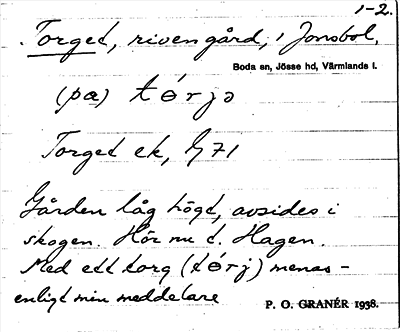 1-2.
Torget, riven gård, i Jonsbol.
Boda sn, Jösse hd, Värmlands l.
(pɑ) tɵ́rjə
Torget ek, G 71
Gården låg högt, avsides i
skogen. Hör nu t. Hagen.
Med ett torg (tɵ́rj) menas –
enligt min meddelare
P. O. GRANÉR 1938.